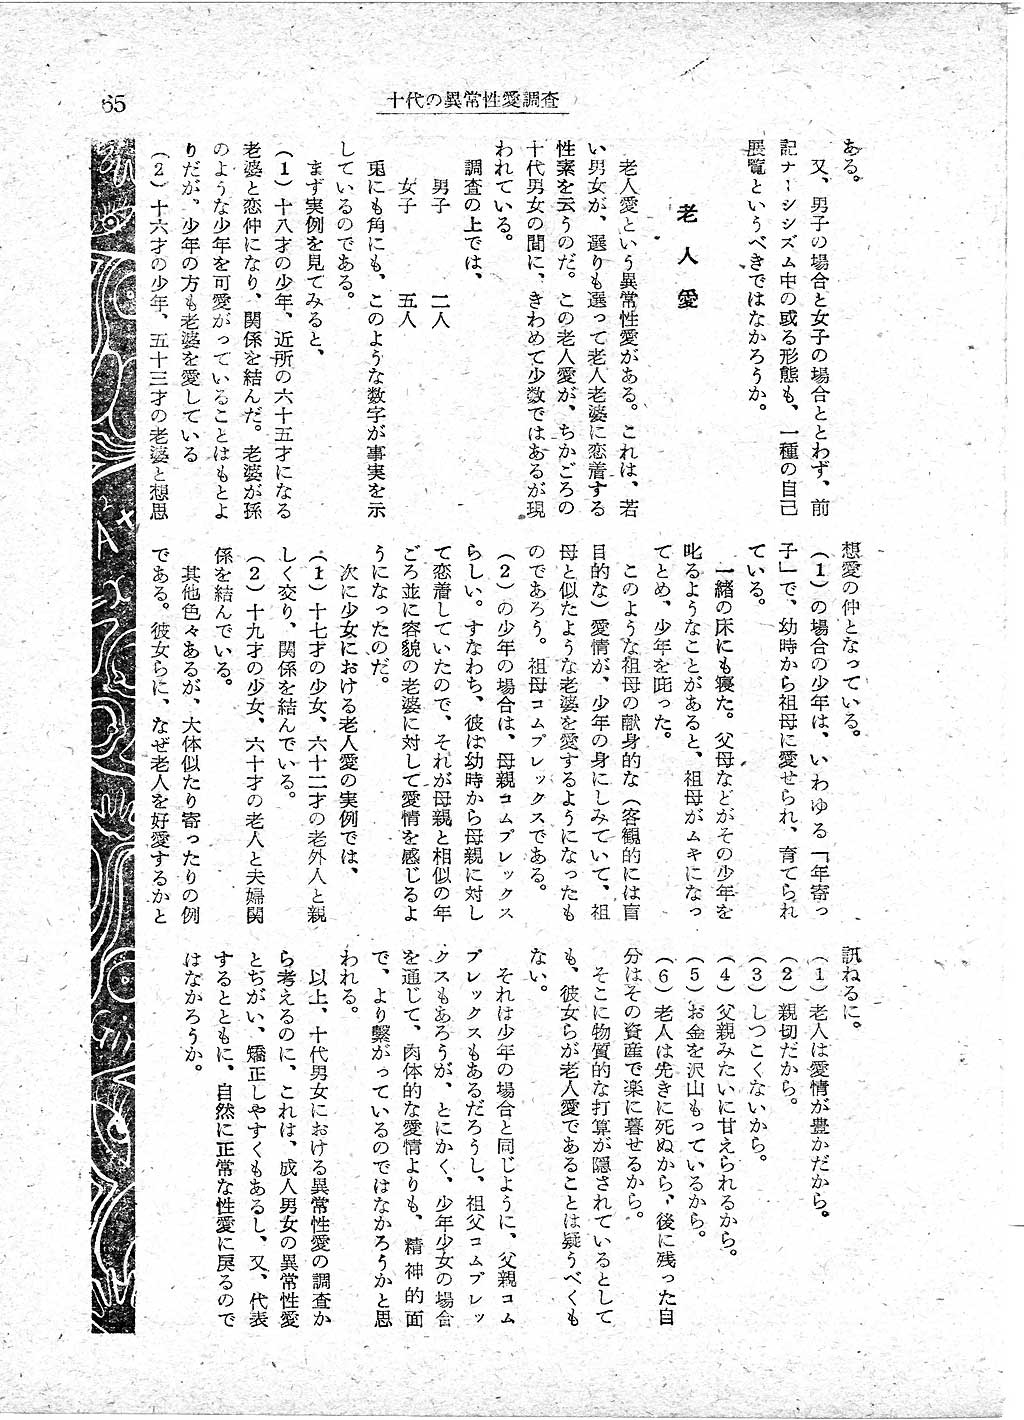 65
十代の異常性愛調査
ある。
又、男子の場合と女子の場合ととわず、前
記ナーシシズム中の或る形態も、一種の自己
展覧というべきではなかろうか。
老人愛
老人愛という異常性愛がある。これは、若
い男女が、選りも選って老人老婆に恋着する
性素を云うのだ。この老人愛が、ちかごろの
十代男女の間に、きわめて少数ではあるが現
われている。
調査の上では、
男子　二人
女子　五人
兎にも角にも、このような数字が事実を示
しているのである。
まず実例を見てみると、
（1）十八才の少年、近所の六十五才になる
老婆と恋仲になり、関係を結んだ。老婆が孫
のような少年を可愛がっていることはもとよ
りだが、少年の方も老婆を愛している
（2）十六才の少年、五十三才の老婆と想思
想愛の仲となっている。
（1）の場合の少年は、いわゆる「年寄っ
子」で、幼時から祖母に愛せられ、育てられ
ている。
一緒の床にも寝た。父母などがその少年を
叱るようなことがあると、祖母がムキになっ
てとめ、少年を庇った。
このような祖母の献身的な（客観的には盲
目的な）愛情が、少年の身にしみていて、祖
母と似たような老婆を愛するようになったも
のであろう。祖母コムプレックスである。
（2）の少年の場合は、母親コムプレックス
らしい。すなわち、彼は幼時から母親に対し
て恋着していたので、それが母親と相似の年
ごろ並に容貌の老婆に対して愛情を感じるよ
うになったのだ。
次に少女における老人愛の実例では、
（1）十七才の少女、六十二才の老外人と親
しく交り、関係を結んでいる。
（2）十九才の少女、六十才の老人と夫婦関
係を結んでいる。
其他色々あるが、大体似たり寄ったりの例
である。彼女らに、なぜ老人を好愛するかと
訊ねるに。
（1）老人は愛情が豊かだから。
（2）親切だから。
（3）しつこくないから。
（4）父親みたいに甘えられるから。
（5）お金を沢山もっているから。
（6）老人は先きに死ぬから、後に残った自
分はその資産で楽に暮せるから。
そこに物質的な打算が隠されているとして
も、彼女らが老人愛であることは疑うべくも
ない。
それは少年の場合と同じように、父親コム
プレックスもあるだろうし、祖父コムプレッ
クスもあろうが、とにかく、少年少女の場合
を通じて、肉体的な愛情よりも、精神的面
で、より繋がっているのではなかろうかと思
われる。
以上、十代男女における異常性愛の調査か
ら考えるのに、これは、成人男女の異常性愛
とちがい、矯正しやすくもあるし、又、代表
するとともに、自然に正常な性愛に戻るので
はなかろうか。